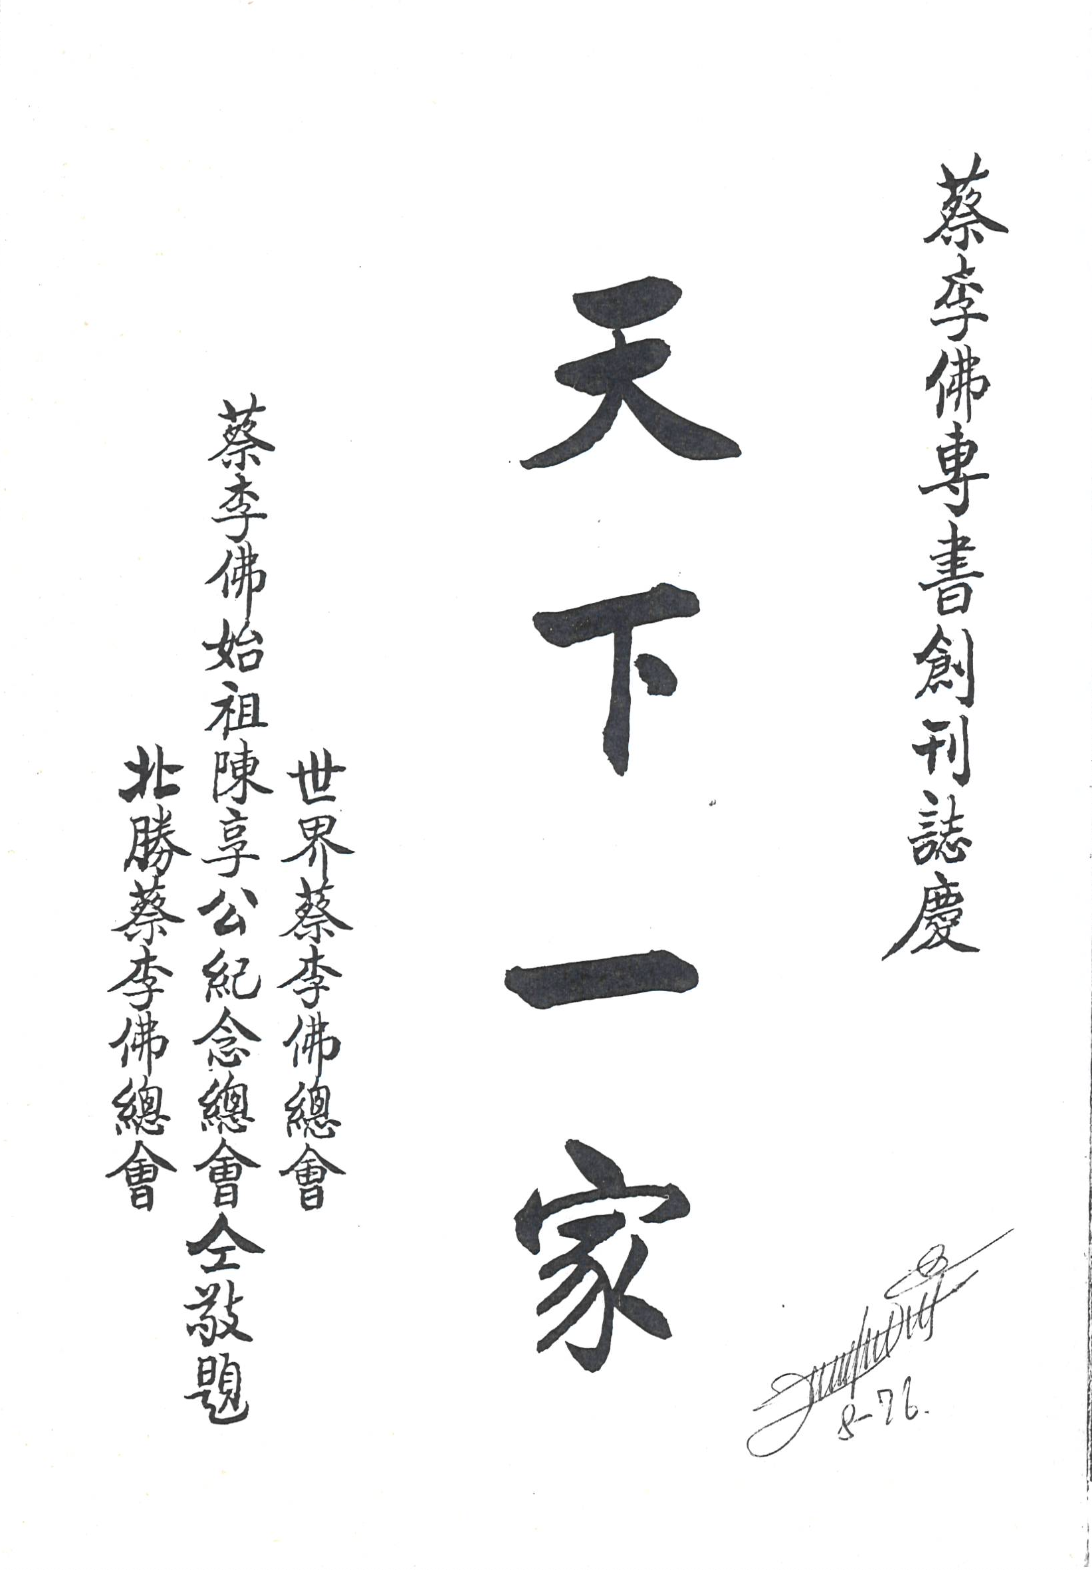 蔡李佛專書創刊誌慶
天下一家
世界蔡李佛總會
蔡李佛始祖陳享公紀念總會仝敬題
北勝蔡李佛總會
8-76.